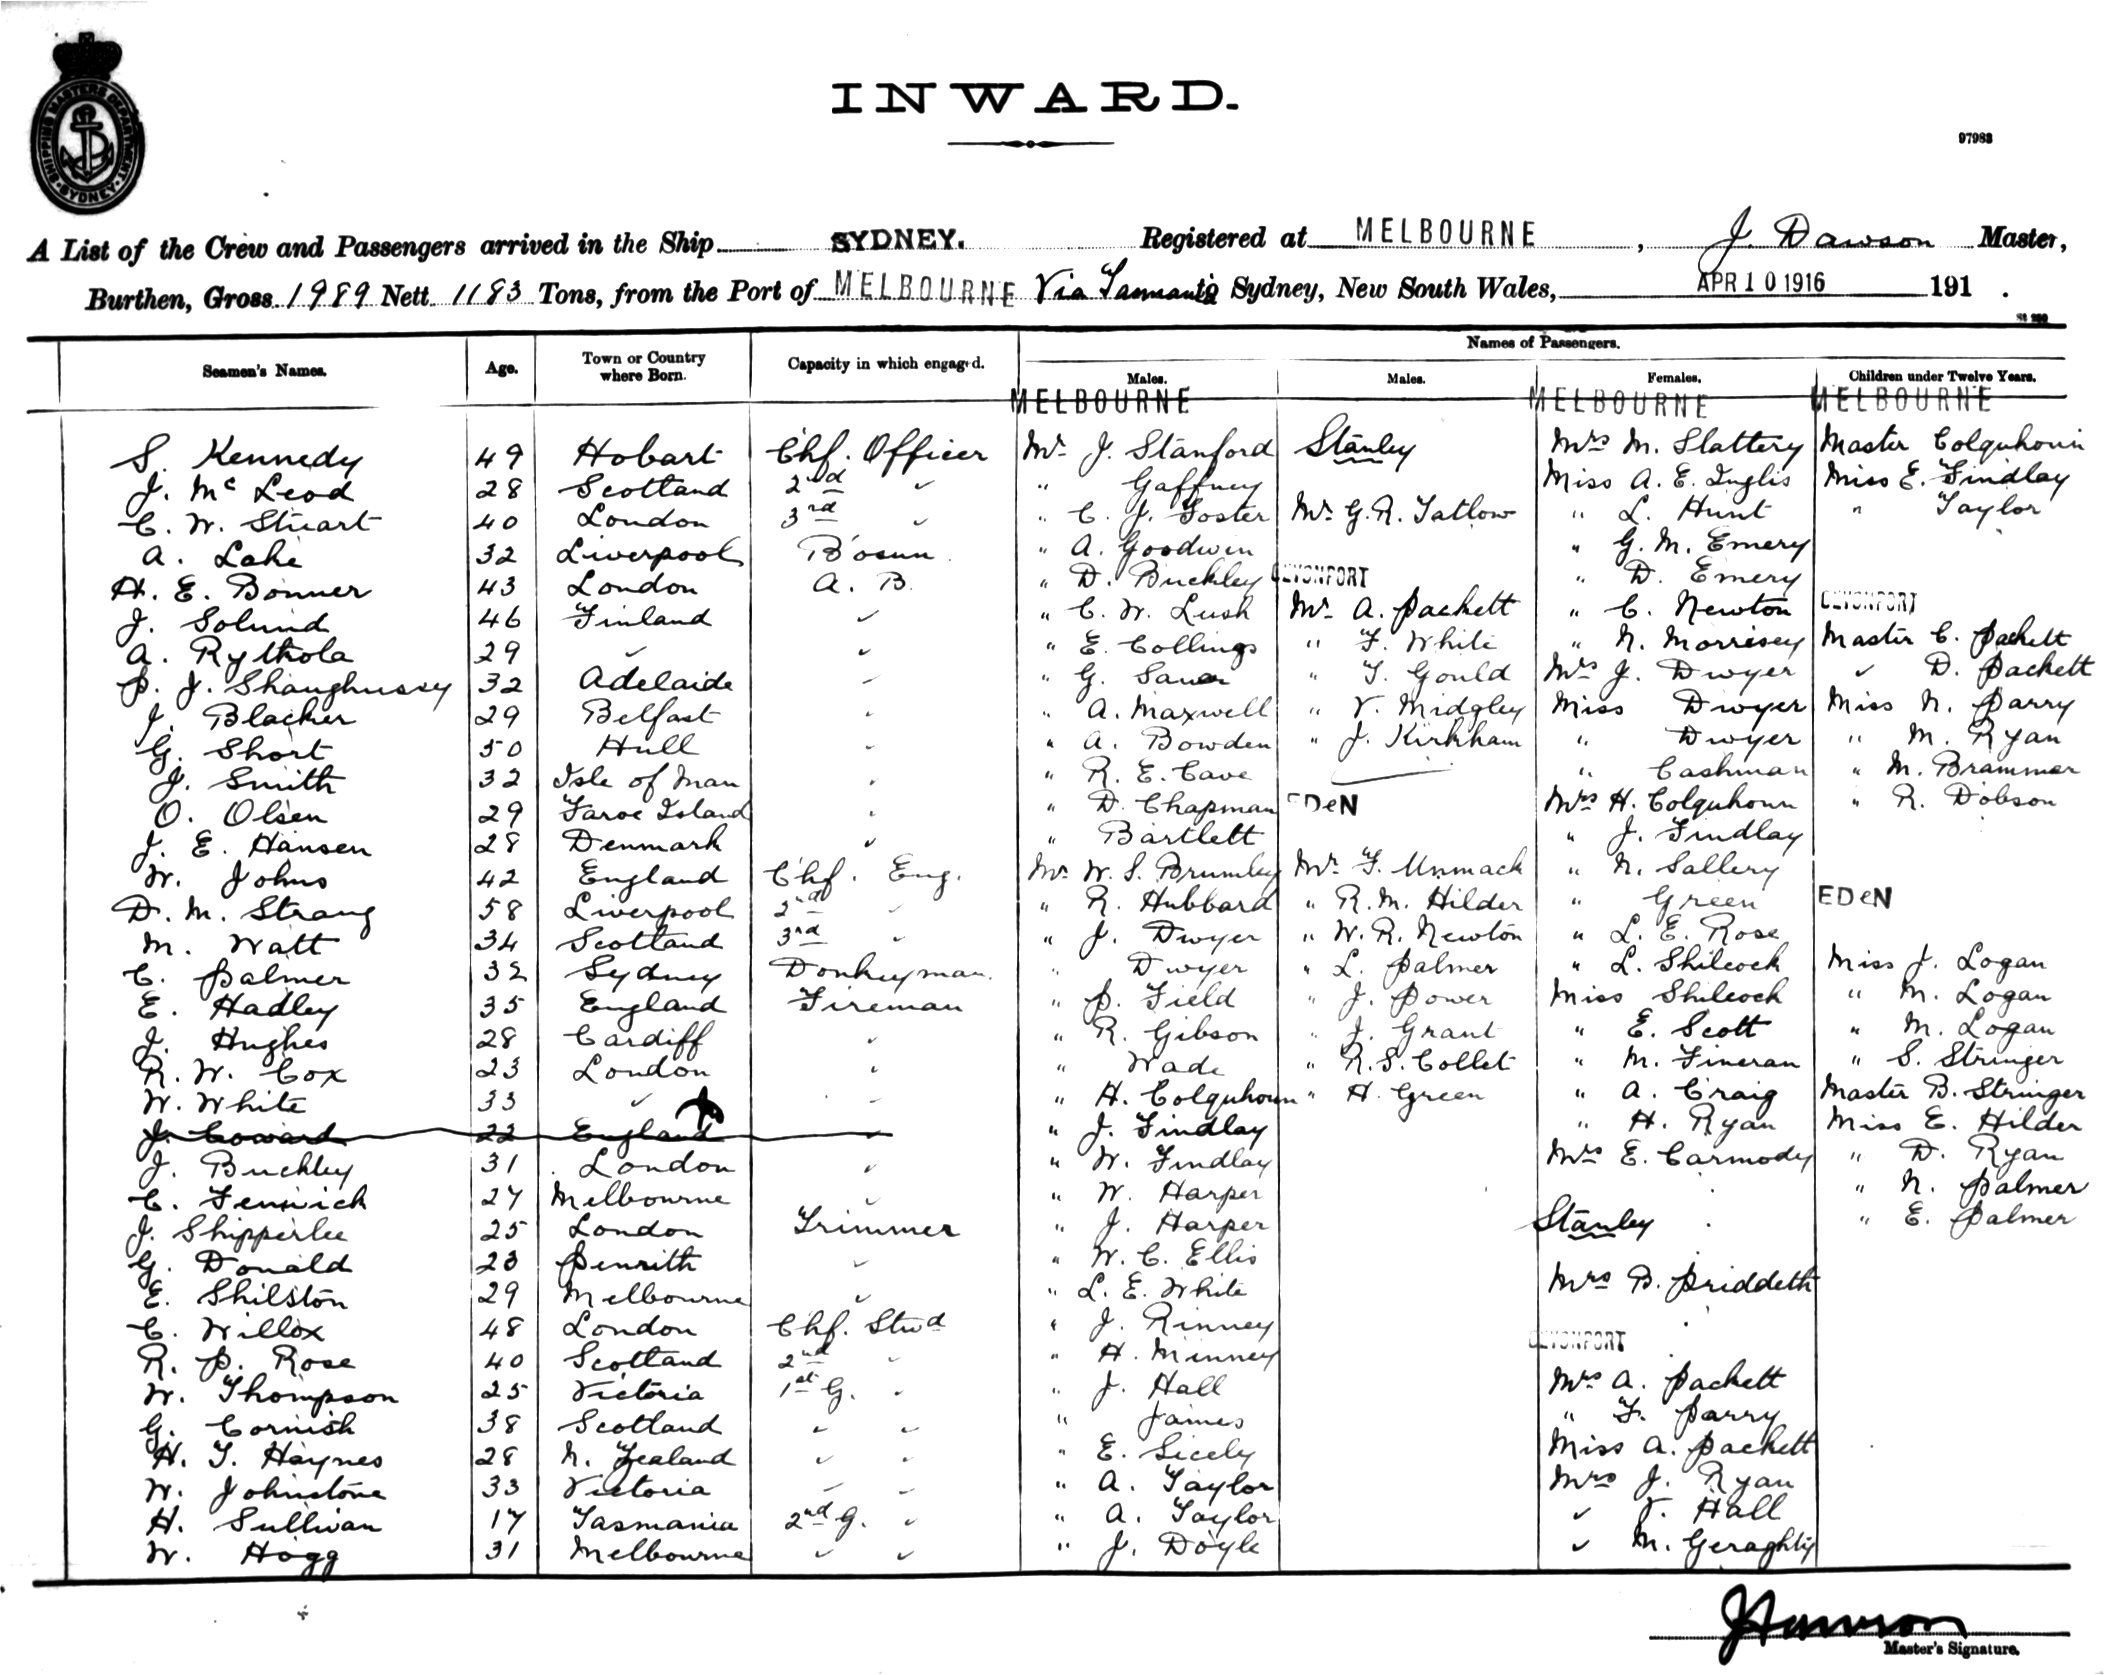 SHIPPING MASTERS DEPARTMENT
SYDNEY
INWARD.
97983
A List of the Crew and Passengers arrived in the Ship SYDNEY. Registered at MELBOURNE, J. Dawson Master,
Burthen, Gross 1989 Nett 1183 Tons, from the Port of MELBOURNE Via Tasmania to Sydney, New South Wales, APR 10 1916 191 .
Names of Passengers.
Seamen's Names. Age. Town or Country where Born. Capacity in which engaged. Males. Males. Females. Children under Twelve Years.
MELBOURNE MELBOURNE MELBOURNE
S. Kennedy 49 Hobart Chf. Officer Mr J. Stanford Stanley Mrs M. Slattery Master Colquhoun
J. Mc Leod 28 Scotland 2nd " " Gaffney Miss A. E. Inglis Miss E. Findlay
C. W. Stuart 40 London 3rd " " C. J. Foster Mr G. R. Tatlow " L. Hunt " Taylor
A. Lake 32 Liverpool B'osun " A. Goodwin " G. M. Emery
H. E. Bonner 43 London A. B. " D. Buckley DEVONPORT " D. Emery
J. Solund 46 Finland " " C. W. Lush Mr A. Packett " C. Newton DEVONPORT
A. Rythola 29 " " " E. Collings " F. White " N. Morrisey Master C. Packett
P. J. Shaughnssey 32 Adelaide " " G. " T. Gould Mrs J. Dwyer " D. Packett
J. Blacker 29 Belfast " " A. Maxwell " V. Midgley Miss Dwyer Miss N. Parry
G. Short 50 Hull " " A. Bowden " J. Kirkham " Dwyer " M. Ryan
J. Smith 32 Isle of Man " " R. E. Cave " Cashman " M. Brammer
O. Olsen 29 Faroe Island " " D. Chapman EDeN Mrs H. Colquhoun " R. Dobson
J. E. Hansen 28 Denmark " " Bartlett " J. Findlay
W. Johns 42 England Chf. Eng. Mr W. S. Brumley Mr F. Unmack " N. Sallery
D. M. Strang 58 Liverpool 2nd " " R. Hubbard " R. M. Hilder " Green EDeN
M. Watt 34 Scotland 3rd " " J. Dwyer " W. R. Newton " L. E. Rose
C. Palmer 32 Sydney Donkeyman. " Dwyer " L. Palmer " L. Shilcock Miss J. Logan
E. Hadley 35 England Fireman " P. Field " J. Power Miss Shilcock " M. Logan
J. Hughes 28 Cardiff " " R. Gibson " J. Grant " E. Scott " M. Logan
R. W. Cox 23 London " " Wade " R. S. Collet " M. Fineran " S. Stringer
W. White 33 " " " H. Colquhoun " H. Green " A. Craig Master B. Stringer
J. Coward 22 England " " J. Findlay " H. Ryan Miss E. Hilder
J. Buckley 31 London " " W. Findlay Mrs E. Carmody " D. Ryan
C. Fenwick 27 Melbourne " " W. Harper " N. Palmer
J. Shipperlee 25 London Trimmer " J. Harper Stanley " E. Palmer
G. Donald 23 Penrith " " W. C. Ellis
E. Shilston 29 Melbourne " " L. E. White Mrs B. Priddeth
C. Willox 48 London Chf. Stwd " J. Rinney
R. P. Rose 40 Scotland 2nd " " H. Minney DEVONPORT
W. Thompson 25 Victoria 1st G. " " J. Hall Mrs A. Packett
G. Cornish 38 Scotland " " " James " F. Parry
H. T. Haynes 28 N. Zealand " " " E. Sicely Miss A. Packett
W. Johnstone 33 Victoria " " " A. Taylor Mrs J. Ryan
H. Sullivan 17 Tasmania 2nd G. " " A. Taylor " V. Hall
W. Hogg 31 Melbourne " " " J. Doyle " M. Geraghty
J Dawson
Master's Signature.